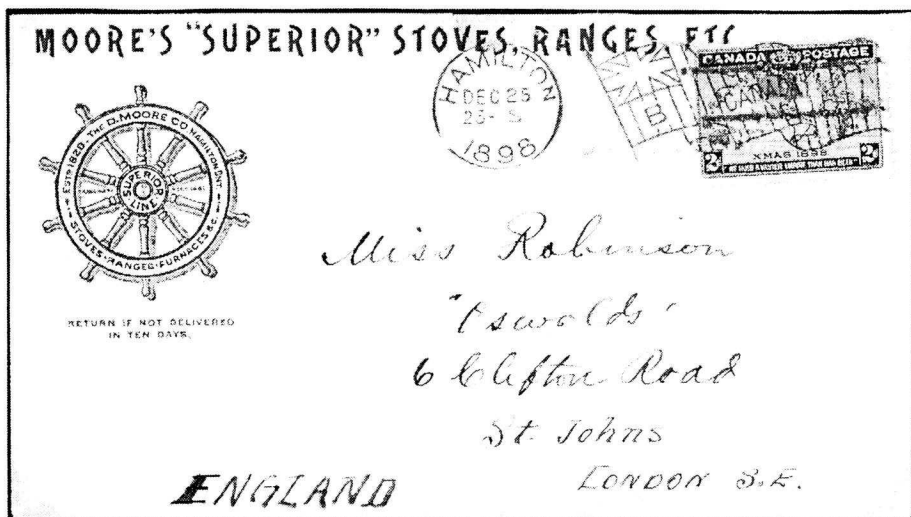 MOORE'S "SUPERIOR" STOVES, RANGES, ETC
HAMILTON
DEC 25
1898
B
CANADA
CANADA POSTAGE
XMAS 1898
2 2
ESTD 1820. THE D. MOORE CO HAMILTON, ONT.
SUPERIOR LINE
STOVES·RANGES·FURNACES &C.
RETURN IF NOT DELIVERED
IN TEN DAYS.
Miss Robinson
"Oswalds"
6 Clifton Road
St. Johns
LONDON S.E.
ENGLAND